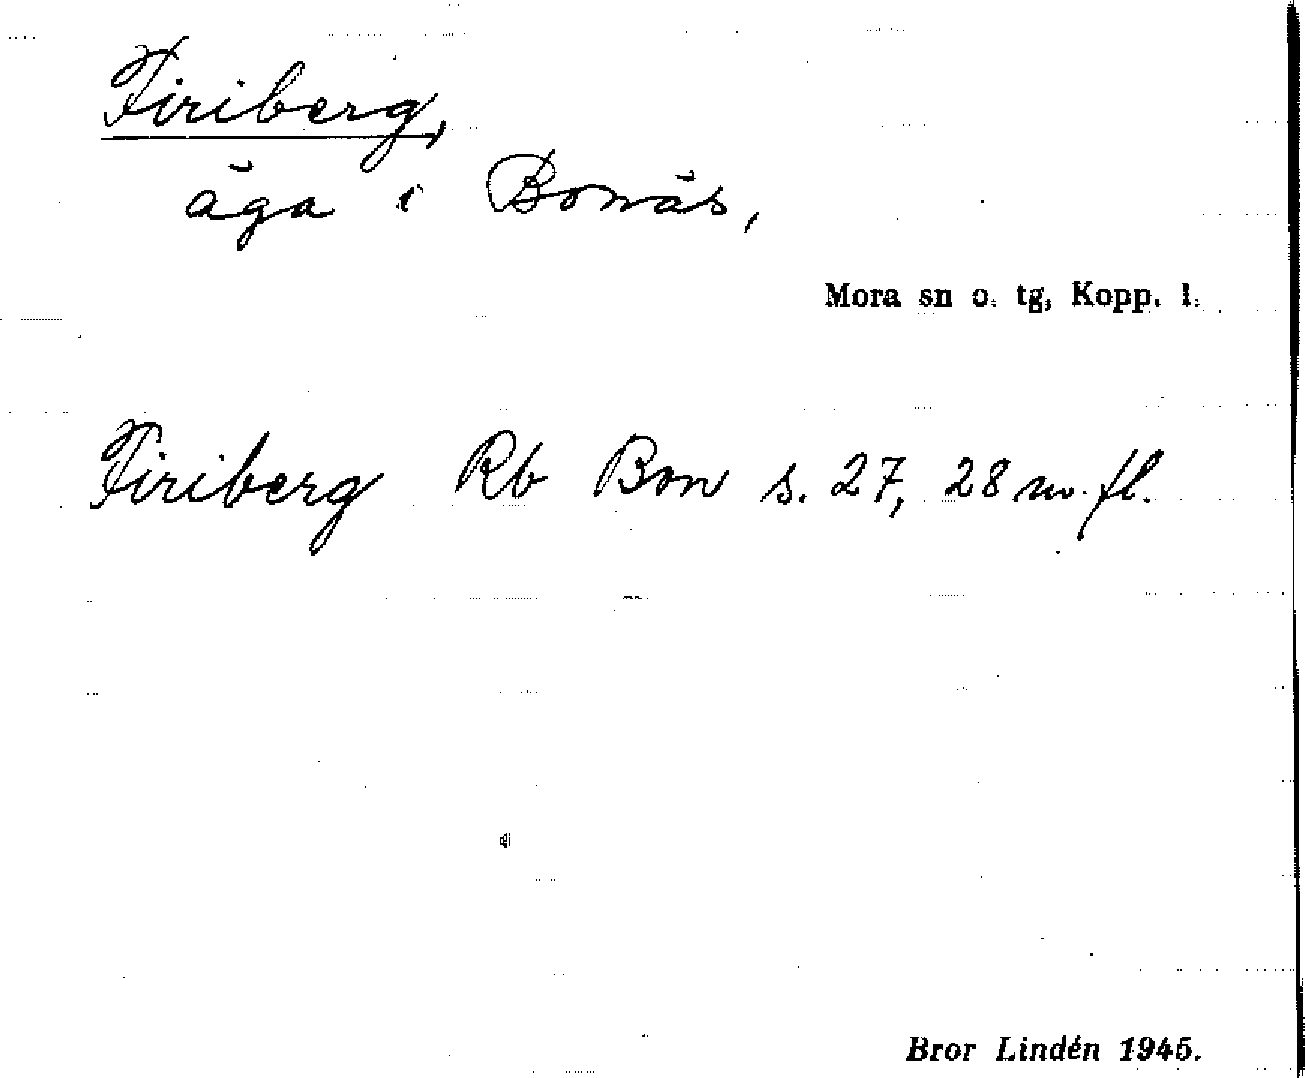 Firiberg,
äga i Bonäs,
Mora sn o. tg, Kopp. l.
Firiberg Rb Bon s. 27, 28 m. fl.
Bror Lindén 1945.